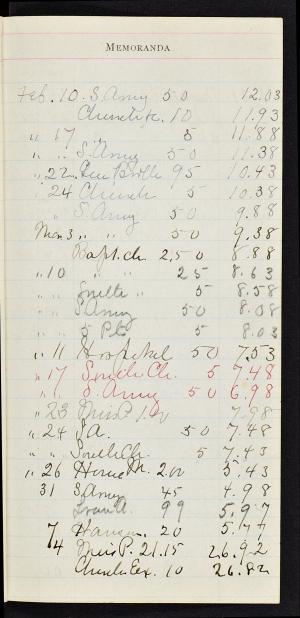 MEMORANDA
Feb. 10 S. Army 50 12.03
10 11.93
" 17 " 5 11.88
" " S. Army 50 11.38
" 22 95 10.43
" 24 Church 5 10.38
" S. Army 50 9.88
Mar 3 " " 50 9.38
Baptch 2.50 6.88
" 10 " 25 8.63
" " 5 8.58
" " S Army 50 8.08
" " 5 8.03
" 11 Hospital 50 7.53
" 17 South Ch. 5 7.48
" " S. Army 50 6.98
" 23 Miss P. 1.00 7.98
" 24 S A. 50 7.48
" " South Ch. 5 7.43
" 26 Home M. 2.00 5.43
31 S. Army 45 4.98
99 5.97
20 5.77
4 Miss P. 21.15 26.92
Church Ex. 10 26.82